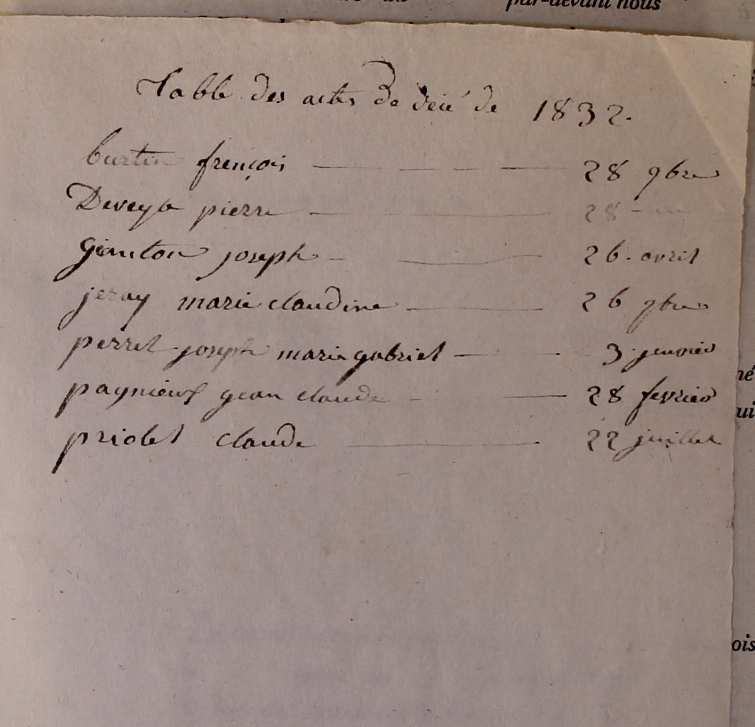 par-devant nous
Table des actes de décé de 1832.
burtin frençois 28 9bre
Deveyle pierre 28
joseph 26 avril
jeray marie claudine 26 9bre
perret joseph marie gabriel 3 jenvier
jean claude 28 fevrier
priolet claude 22 juillet
né
ui
ois